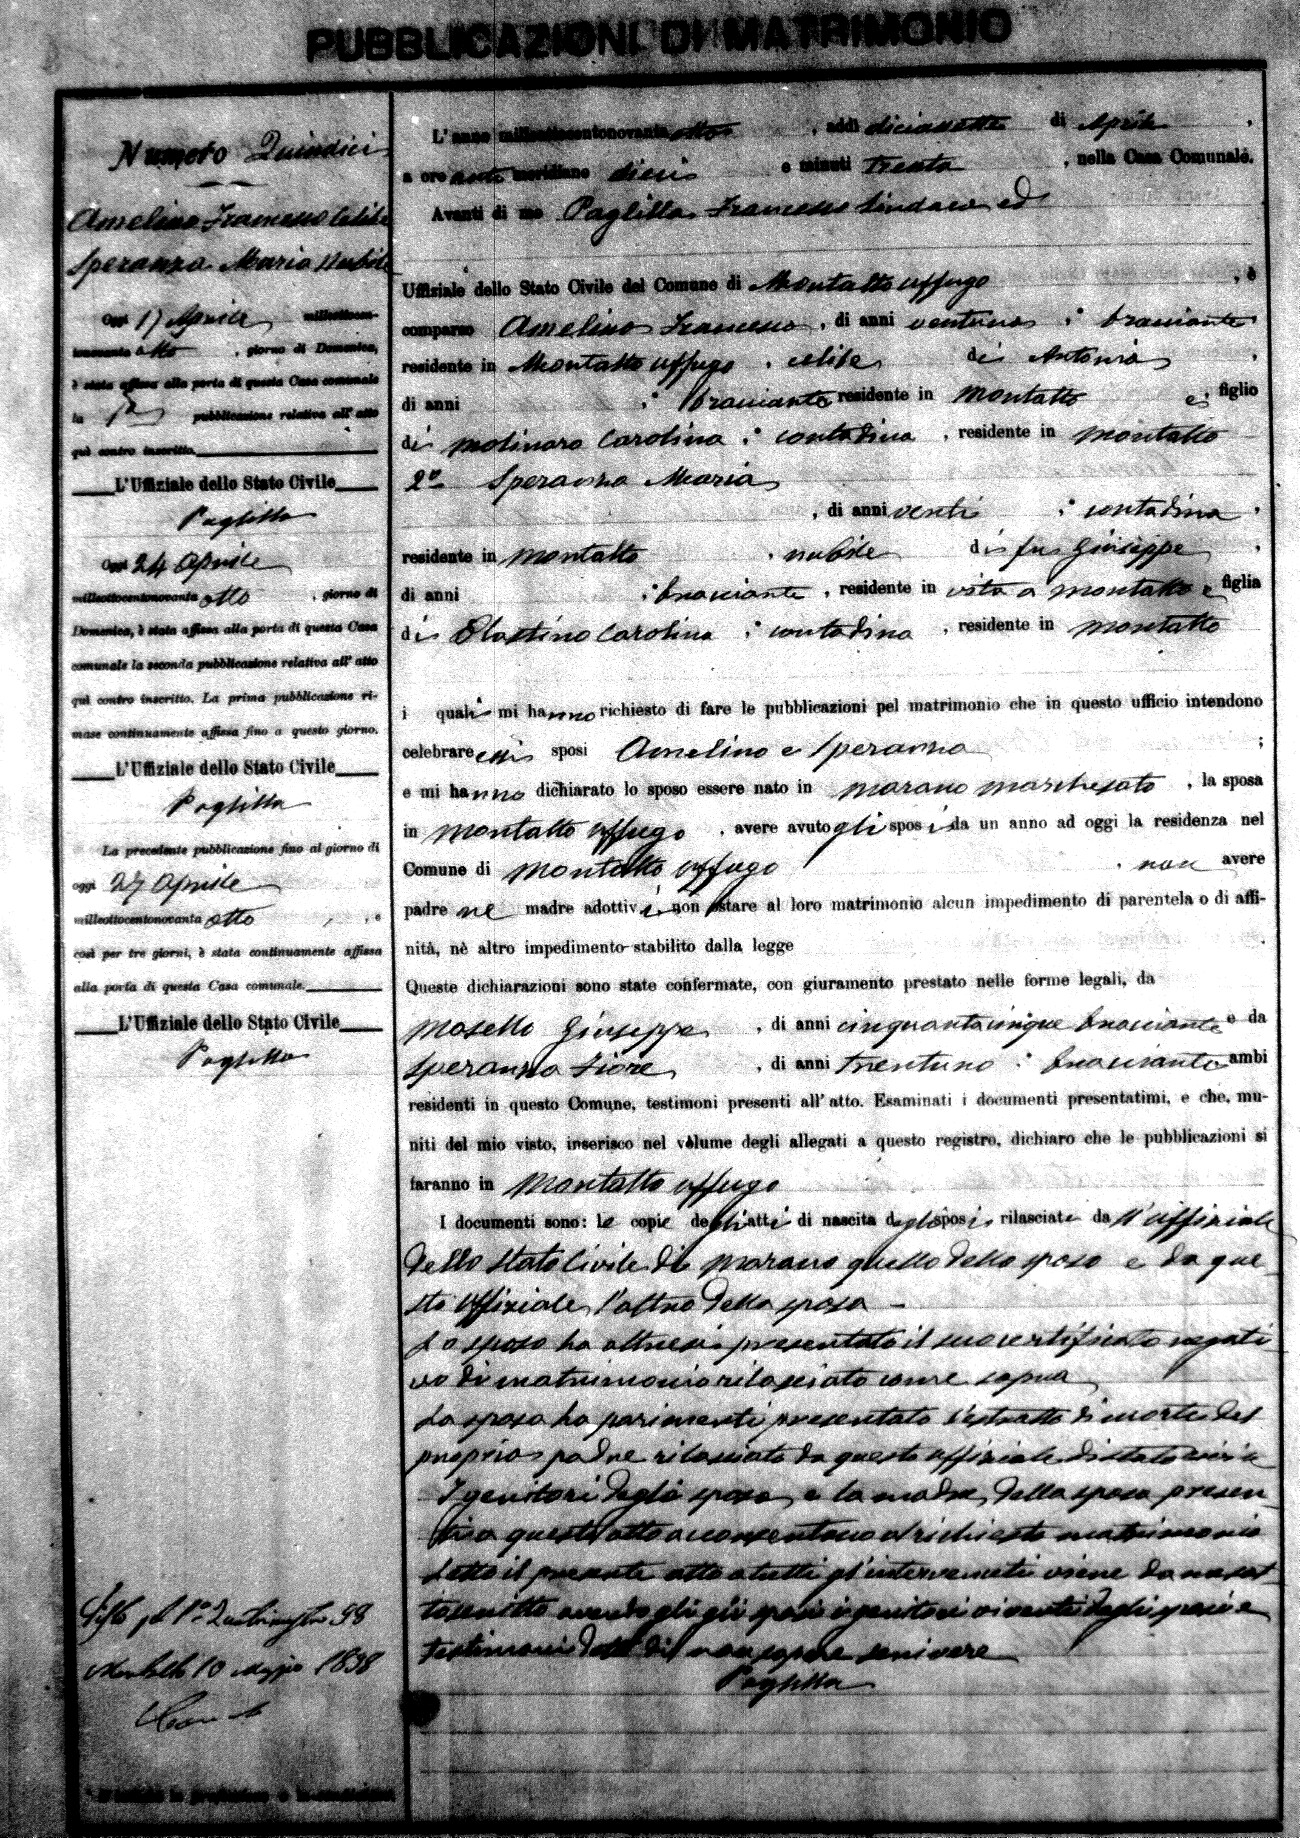 PUBBLICAZIONI DI MATRIMONIO
Numero Quindici
Amelino Francesco Celibe
Speranza Maria Nubile
Oggi 17 Aprile millottocen-
tonovanta otto, giorno di Domenica,
è stata affissa alla porta di questa Casa comunale
la 1a pubblicazione relativa all'atto
quì contro inscritto.
L'Uffiziale dello Stato Civile
Paglilla
Oggi 24 Aprile
milleottocentonovanta otto, giorno di
Domenica, è stata affissa alla porta di questa Casa
comunale la seconda pubblicazione relativa all'atto
quì contro inscritto. La prima pubblicazione ri-
mase continuamente affissa fino a questo giorno.
L'Uffiziale dello Stato Civile
Paglilla
La precedente pubblicazione fino al giorno di
oggi 27 Aprile
milleottocentonovanta otto, e
così per tre giorni, è stata continuamente affissa
alla porta di questa Casa comunale.
L'Uffiziale dello Stato Civile
Paglilla
pel 1° Quadrimestre 98
Montalto 10 Maggio 1898
L'anno milleottocentonovantaotto, addì diciassette di Aprile,
a ore anti meridiane dieci e minuti trenta, nella Casa Comunale.
Avanti di me Paglilla Francesco Sindaco ed
Uffiziale dello Stato Civile del Comune di Montalto Uffugo, è
comparso Amelino Francesco, di anni ventuno, bracciante
residente in Montalto Uffugo, celibe di Antonio,
di anni , bracciante residente in Montalto e, figlio
di Molinaro Carolina, contadina, residente in Montalto
2° Speranza Maria
, di anni venti, contadina,
residente in Montalto, nubile di fu Giuseppe,
di anni , bracciante, residente in vita a Montalto e figlia
di Plastino Carolina, contadina, residente in Montalto
i quali mi hanno richiesto di fare le pubblicazioni pel matrimonio che in questo ufficio intendono
celebrare essi sposi Amelino e Speranza ;
e mi hanno dichiarato lo sposo essere nato in Marano Marchesato, la sposa
in Montalto Uffugo, avere avuto gli sposi da un anno ad oggi la residenza nel
Comune di Montalto Uffugo, non avere
padre nè madre adottivi, non ostare al loro matrimonio alcun impedimento di parentela o di affi-
nità, nè altro impedimento stabilito dalla legge
Queste dichiarazioni sono state confermate, con giuramento prestato nelle forme legali, da
Mosello Giuseppe, di anni cinquantacinque bracciante e da
Speranza Fiore, di anni trentuno, bracciante ambi
residenti in questo Comune, testimoni presenti all'atto. Esaminati i documenti presentatimi, e che, mu-
niti del mio visto, inserisco nel volume degli allegati a questo registro, dichiaro che le pubblicazioni si
faranno in Montalto Uffugo
I documenti sono: le copie degli atti di nascita degli sposi rilasciate da l'uffiziale
dello Stato Civile di Marano quello dello sposo e da que-
sto Uffiziale l'altro della sposa -
Lo sposo ha altresì presentato il suo certificato negati-
vo di matrimonio rilasciato come sopra
La sposa ha parimenti presentato l'estratto di morte del
proprio padre rilasciato da questo uffiziale di stato civile
I genitori dello sposo, e la madre, della sposa presen-
ti a questo atto acconsentono al richiesto matrimonio
Letto il presente atto a tutti gl'intervenuti viene da me sot-
toscritto avendo gli sposi i genitori viventi degli sposi e
testimoni detto di non sapere scrivere
Paglilla